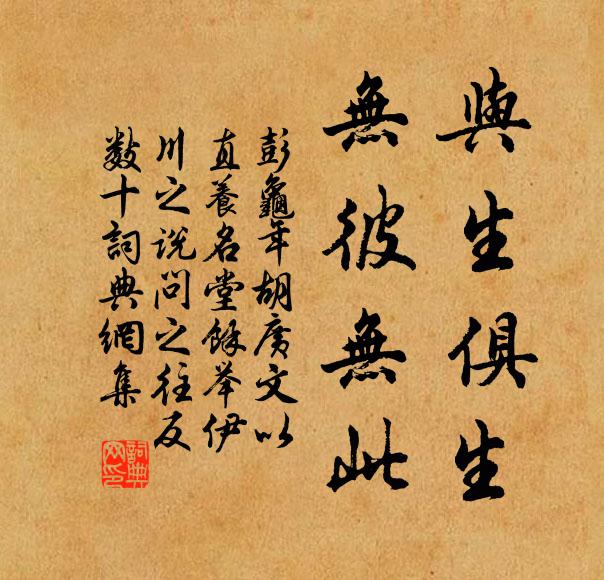 與生俱生
無彼無此
彭龜年胡廣文以
直養名堂餘举伊
川之說問之往反
數十詞典網集
詞典
网印